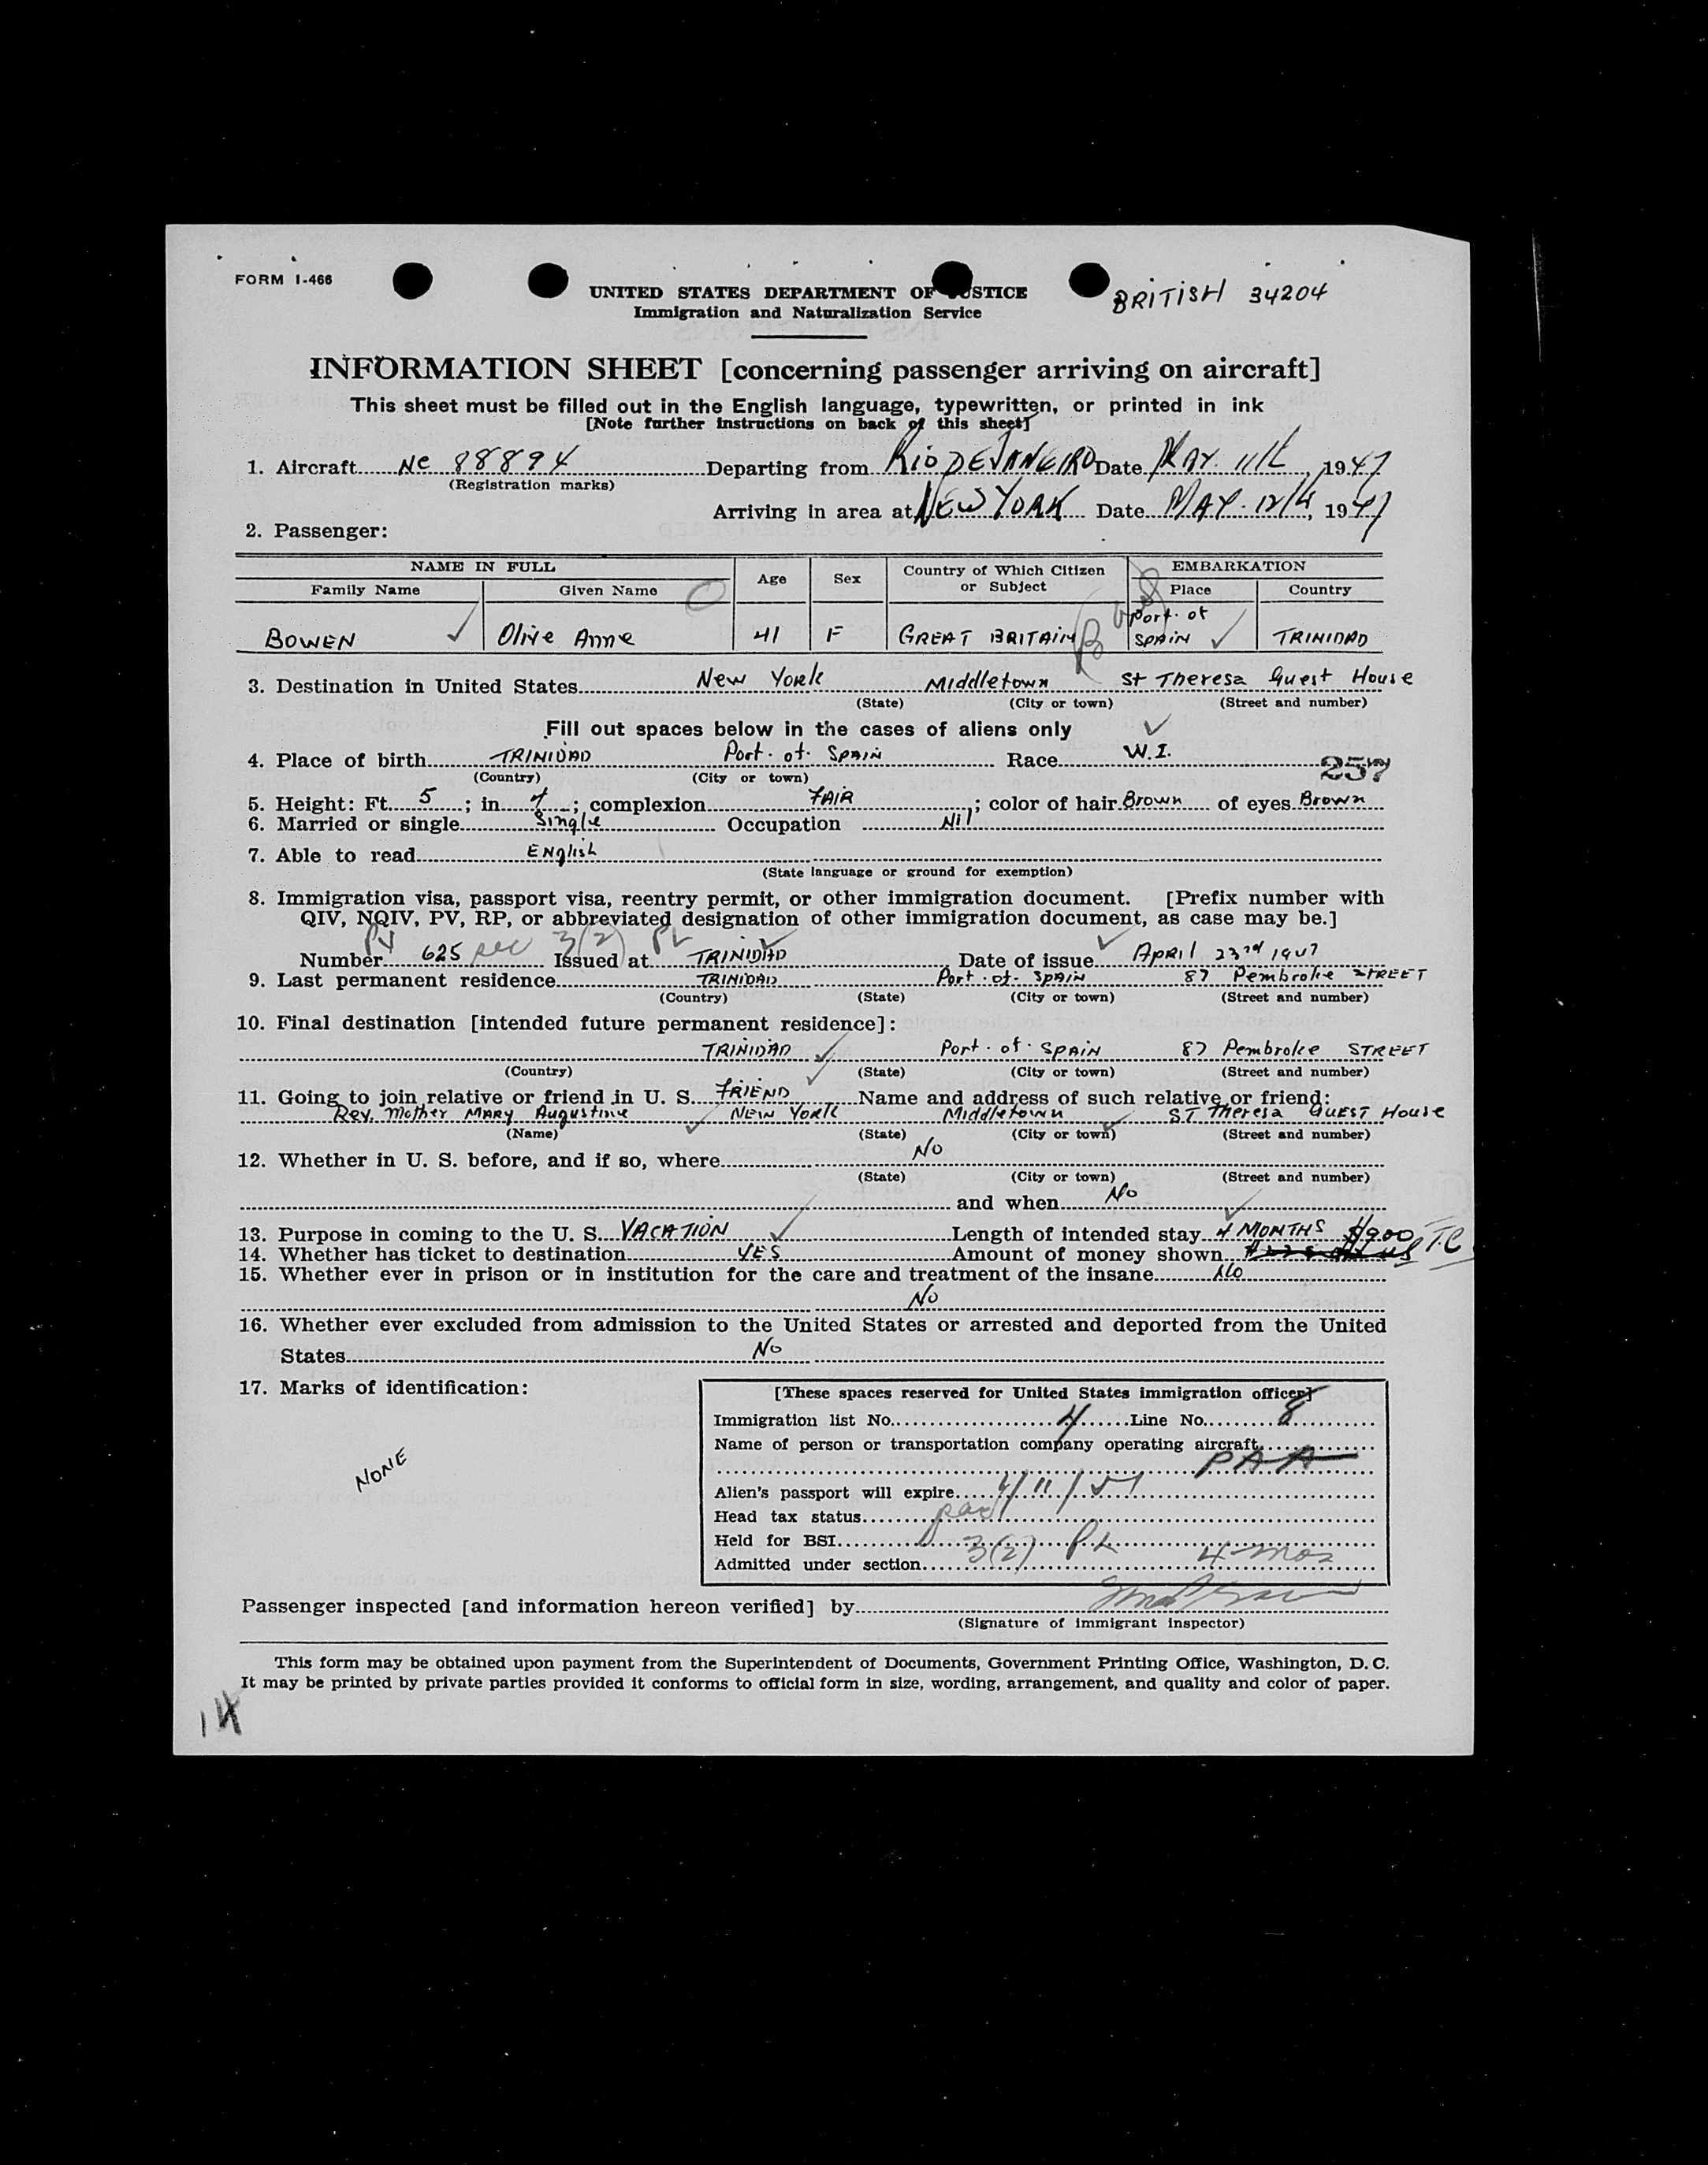 FORM I-466
BRITISH 34204
UNITED STATES DEPARTMENT OF JUSTICE
Immigration and Naturalization Service
INFORMATION SHEET [concerning passenger arriving on aircraft]
This sheet must be filled out in the English language, typewritten, or printed in ink
[Note further instructions on back of this sheet]
1. Aircraft NC 88894 Departing from RIO DE JANEIRO Date MAY 11th, 1947
(Registration marks)
Arriving in area at NEW YORK Date MAY 12th, 1947
2. Passenger:
NAME IN FULL Age Sex Country of Which Citizen or Subject EMBARKATION
Family Name Given Name Place Country
BOWEN Olive Anne 41 F GREAT BRITAIN Port of SPAIN TRINIDAD
3. Destination in United States New York Middletown St Theresa Guest House
(State) (City or town) (Street and number)
Fill out spaces below in the cases of aliens only
4. Place of birth TRINIDAD Port of SPAIN Race W.I.
257
(Country) (City or town)
5. Height: Ft. 5; in. 4; complexion FAIR; color of hair Brown of eyes Brown
6. Married or single Single Occupation Nil
7. Able to read English
(State language or ground for exemption)
8. Immigration visa, passport visa, reentry permit, or other immigration document. [Prefix number with
QIV, NQIV, PV, RP, or abbreviated designation of other immigration document, as case may be.]
Number PV 625 sec 3(2) PL Issued at TRINIDAD Date of issue April 23rd 1947
9. Last permanent residence TRINIDAD Port of SPAIN 87 Pembroke STREET
(Country) (State) (City or town) (Street and number)
10. Final destination [intended future permanent residence]:
TRINIDAD Port of SPAIN 87 Pembroke STREET
(Country) (State) (City or town) (Street and number)
11. Going to join relative or friend in U. S. FRIEND Name and address of such relative or friend:
Rev. Mother MARY Augustine NEW YORK Middletown ST Theresa GUEST House
(Name) (State) (City or town) (Street and number)
12. Whether in U. S. before, and if so, where No
(State) (City or town) (Street and number)
and when No
13. Purpose in coming to the U. S. VACATION Length of intended stay 4 MONTHS
14. Whether has ticket to destination YES Amount of money shown $900 T.C
15. Whether ever in prison or in institution for the care and treatment of the insane No
No
16. Whether ever excluded from admission to the United States or arrested and deported from the United
States No
17. Marks of identification:
NONE
[These spaces reserved for United States immigration officer]
Immigration list No. 4 Line No. 8
Name of person or transportation company operating aircraft
PAA
Alien's passport will expire 4/11/51
Head tax status pad
Held for BSI
Admitted under section 3(2) PL 4 mos
Passenger inspected [and information hereon verified] by
(Signature of immigrant inspector)
This form may be obtained upon payment from the Superintendent of Documents, Government Printing Office, Washington, D. C.
It may be printed by private parties provided it conforms to official form in size, wording, arrangement, and quality and color of paper.
14